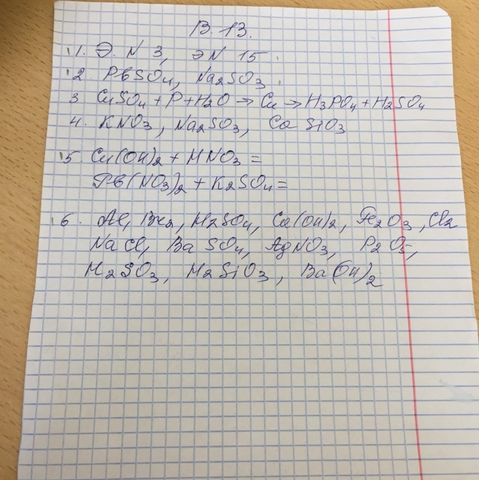 В. 13.
1. Э. N 3, ЭN 15.
2. PbSO4, Na2SO3.
3. CuSO4 + P + H2O → Cu → H3PO4 + H2SO4
4. KNO3, Na2SO3, Ca SiO3
5. Cu(OH)2 + HNO3 =
Pb(NO3)2 + K2SO4 =
6. Al, Br2, H2SO4, Ca(OH)2, Fe2O3, Cl2
NaCl, Ba SO4, AgNO3, P2O5,
H2SO3, H2SiO3, Ba(OH)2